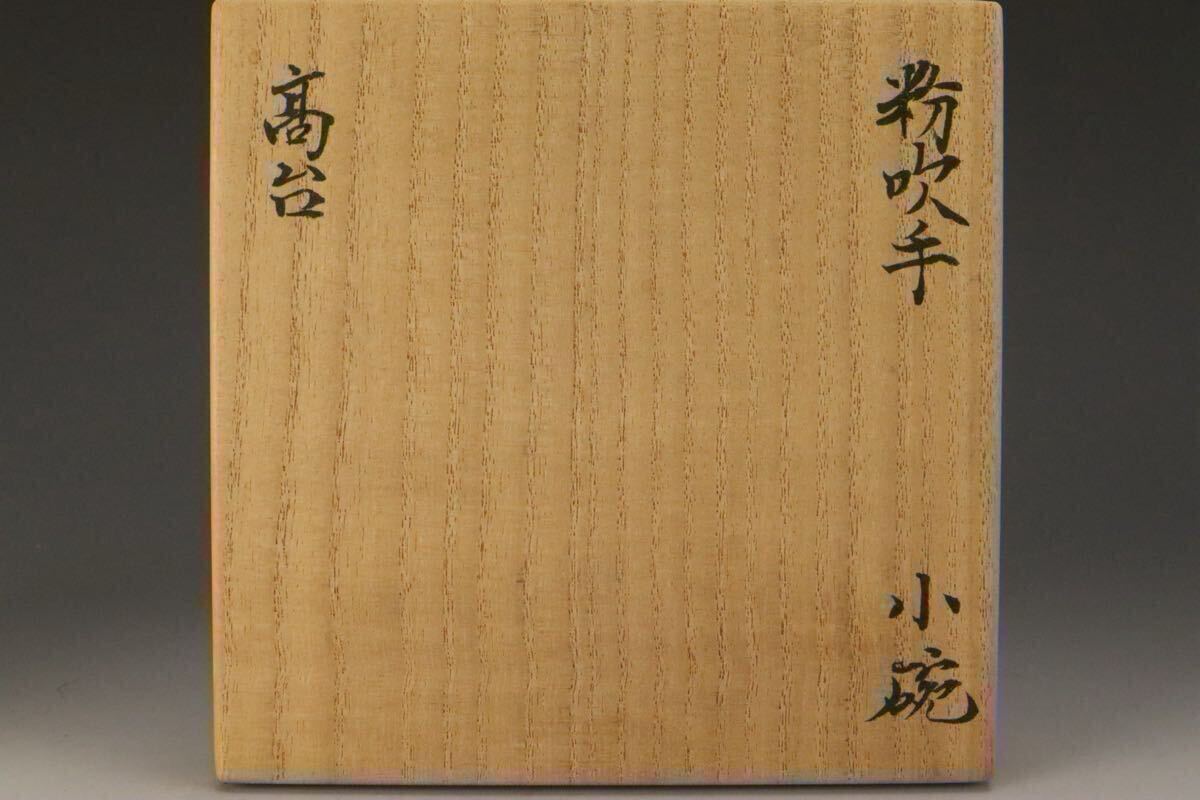 粉吹手 小碗
髙台